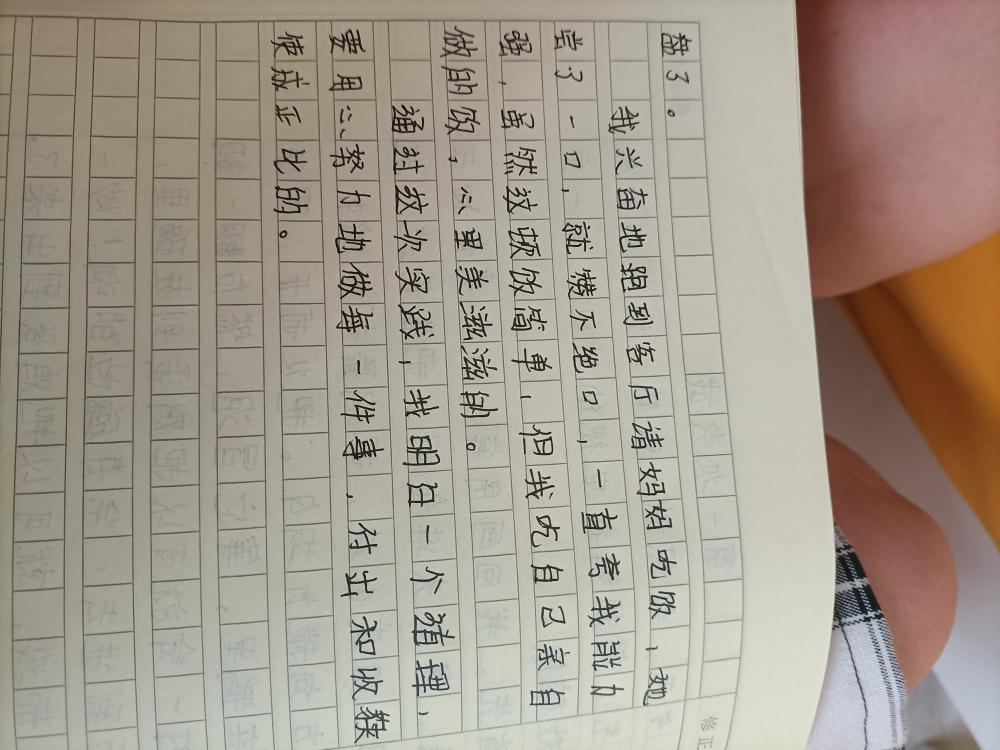 盘了。
我兴奋地跑到客厅请妈妈吃饭,她
尝了一口,就赞不绝口,一直夸我能力
强,虽然这顿饭简单,但我吃自己亲自
做的饭,心里美滋滋的。
通过这次实践,我明白一个道理,
要用心努力地做每一件事,付出和收获
使成正比的。
修正